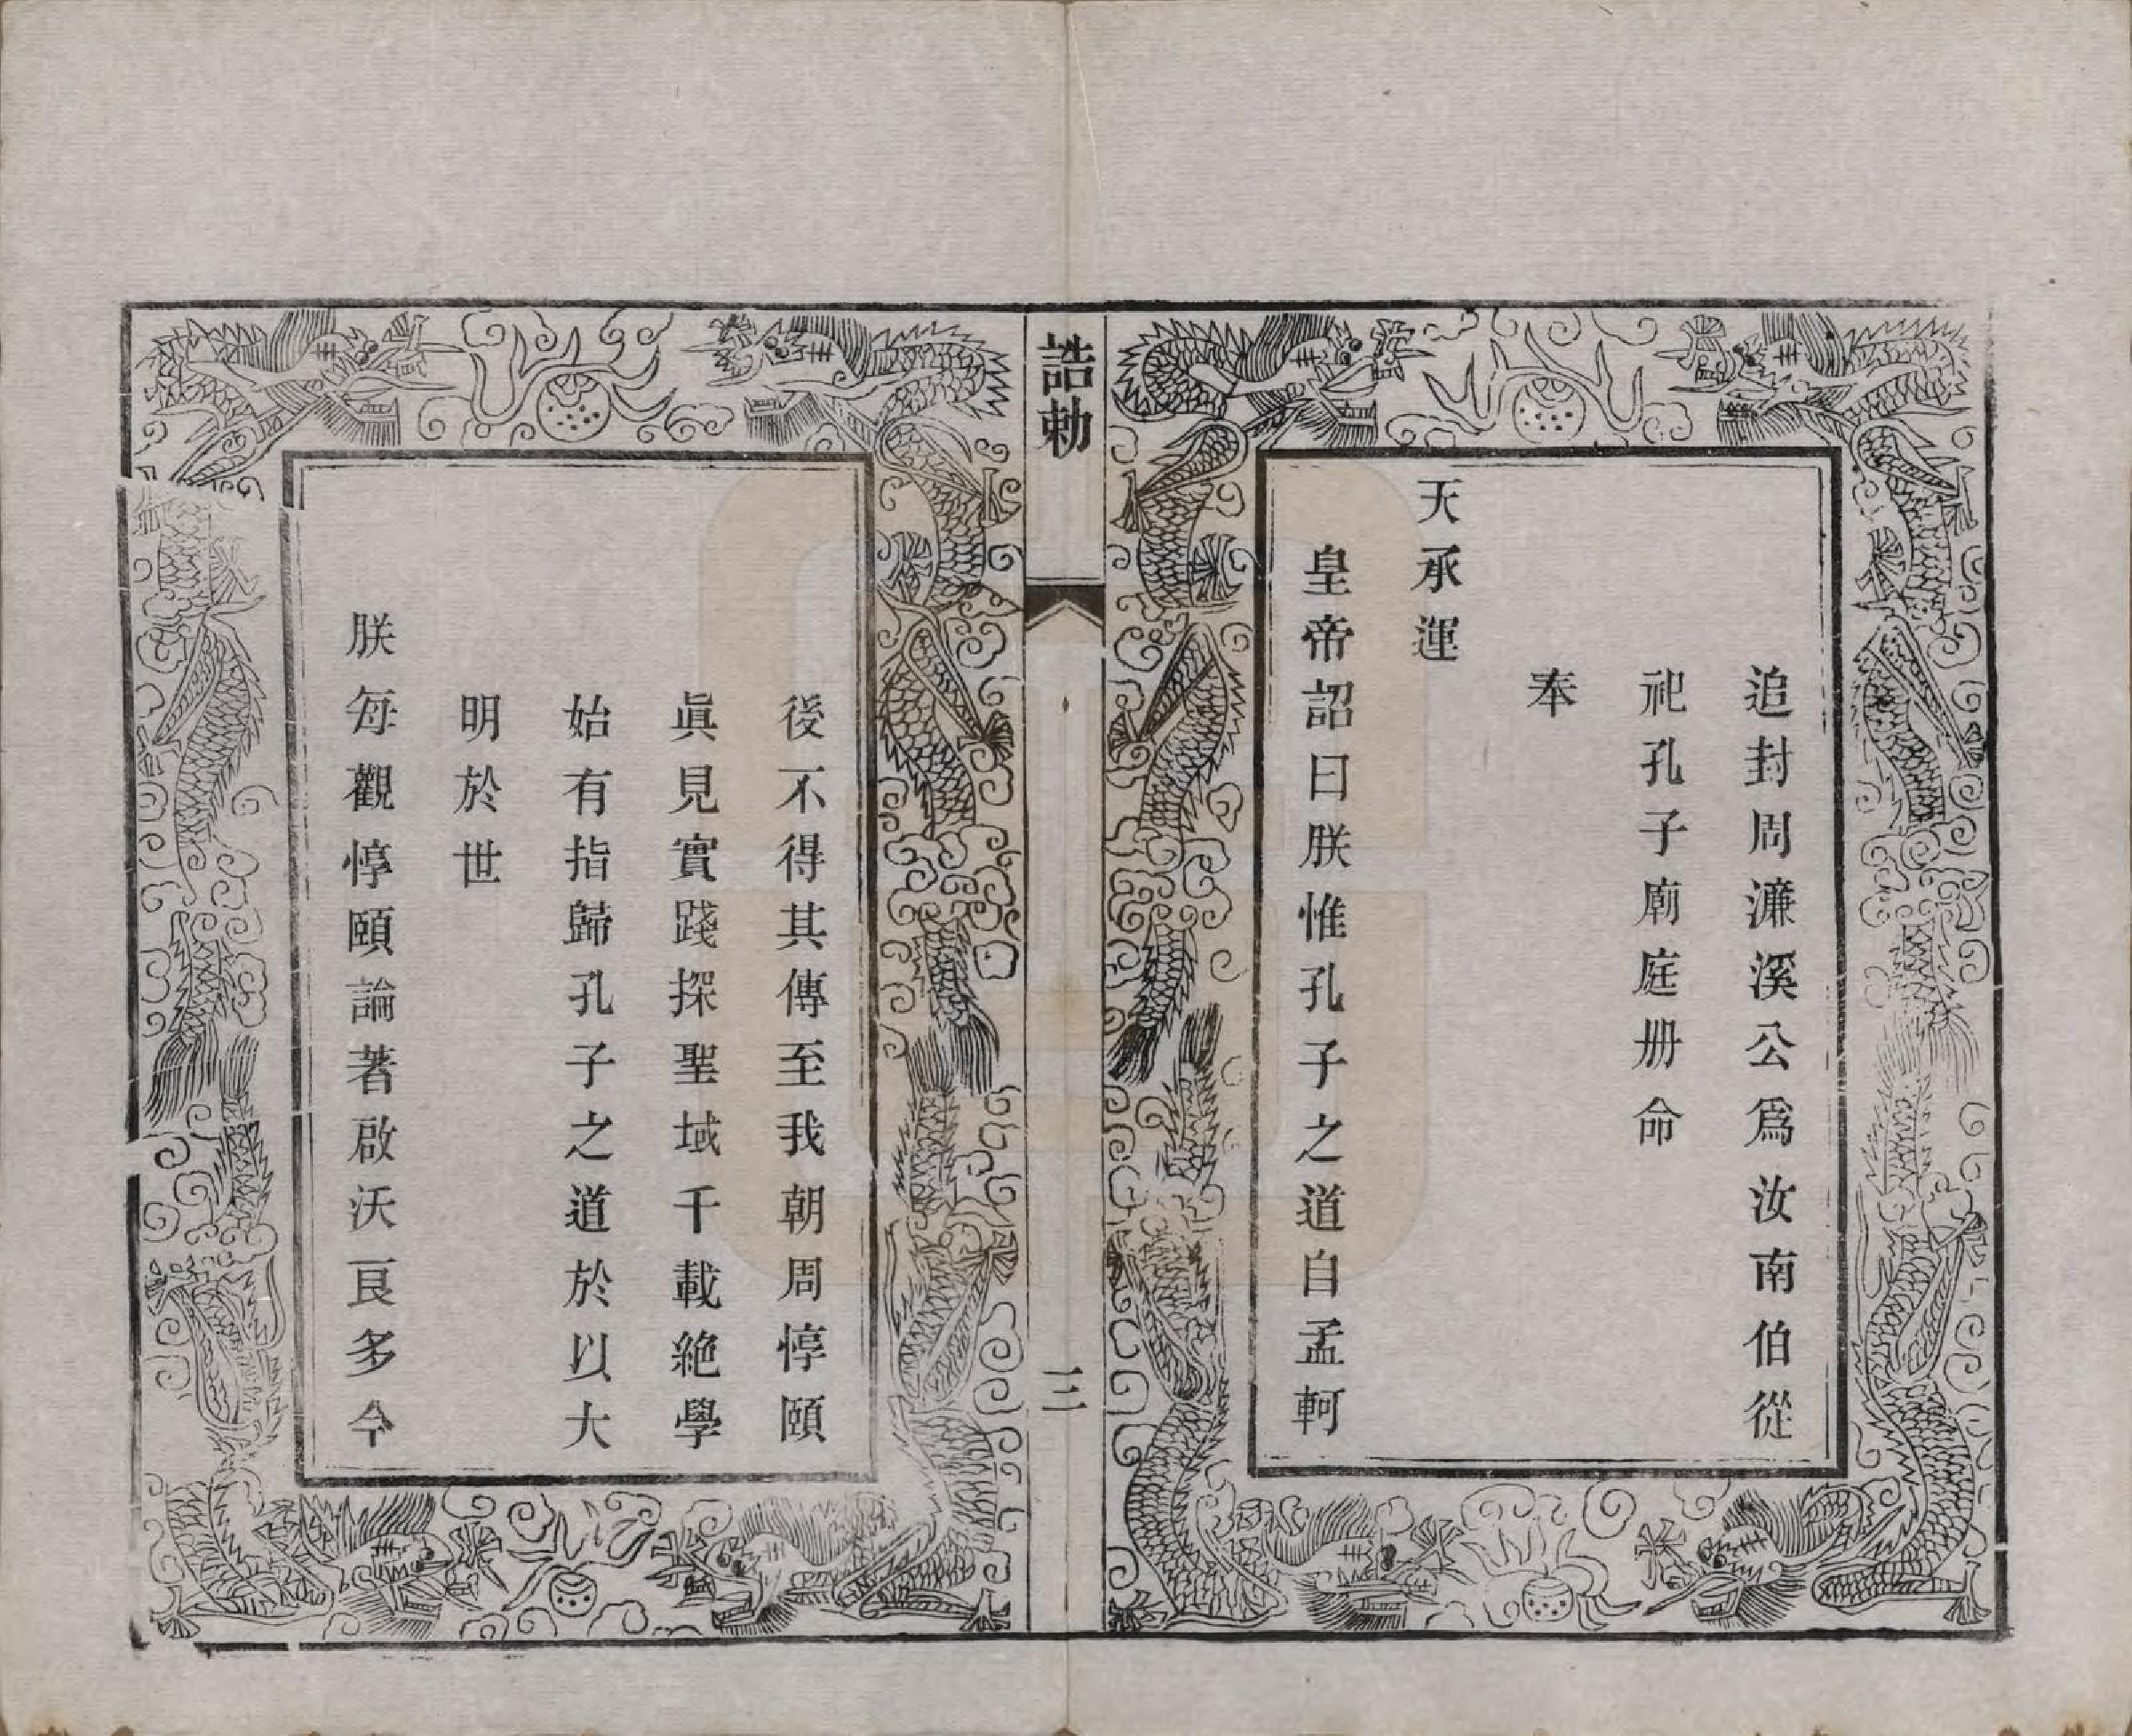 追封周濂溪公爲汝南伯從
祀孔子廟庭册命
奉
天承運
皇帝詔曰朕惟孔子之道自孟軻
誥勅
三
後不得其傳至我朝周惇頤
眞見實踐探聖域千載絶學
始有指歸孔子之道於以大
明於世
朕每觀惇頤論著啟沃良多今